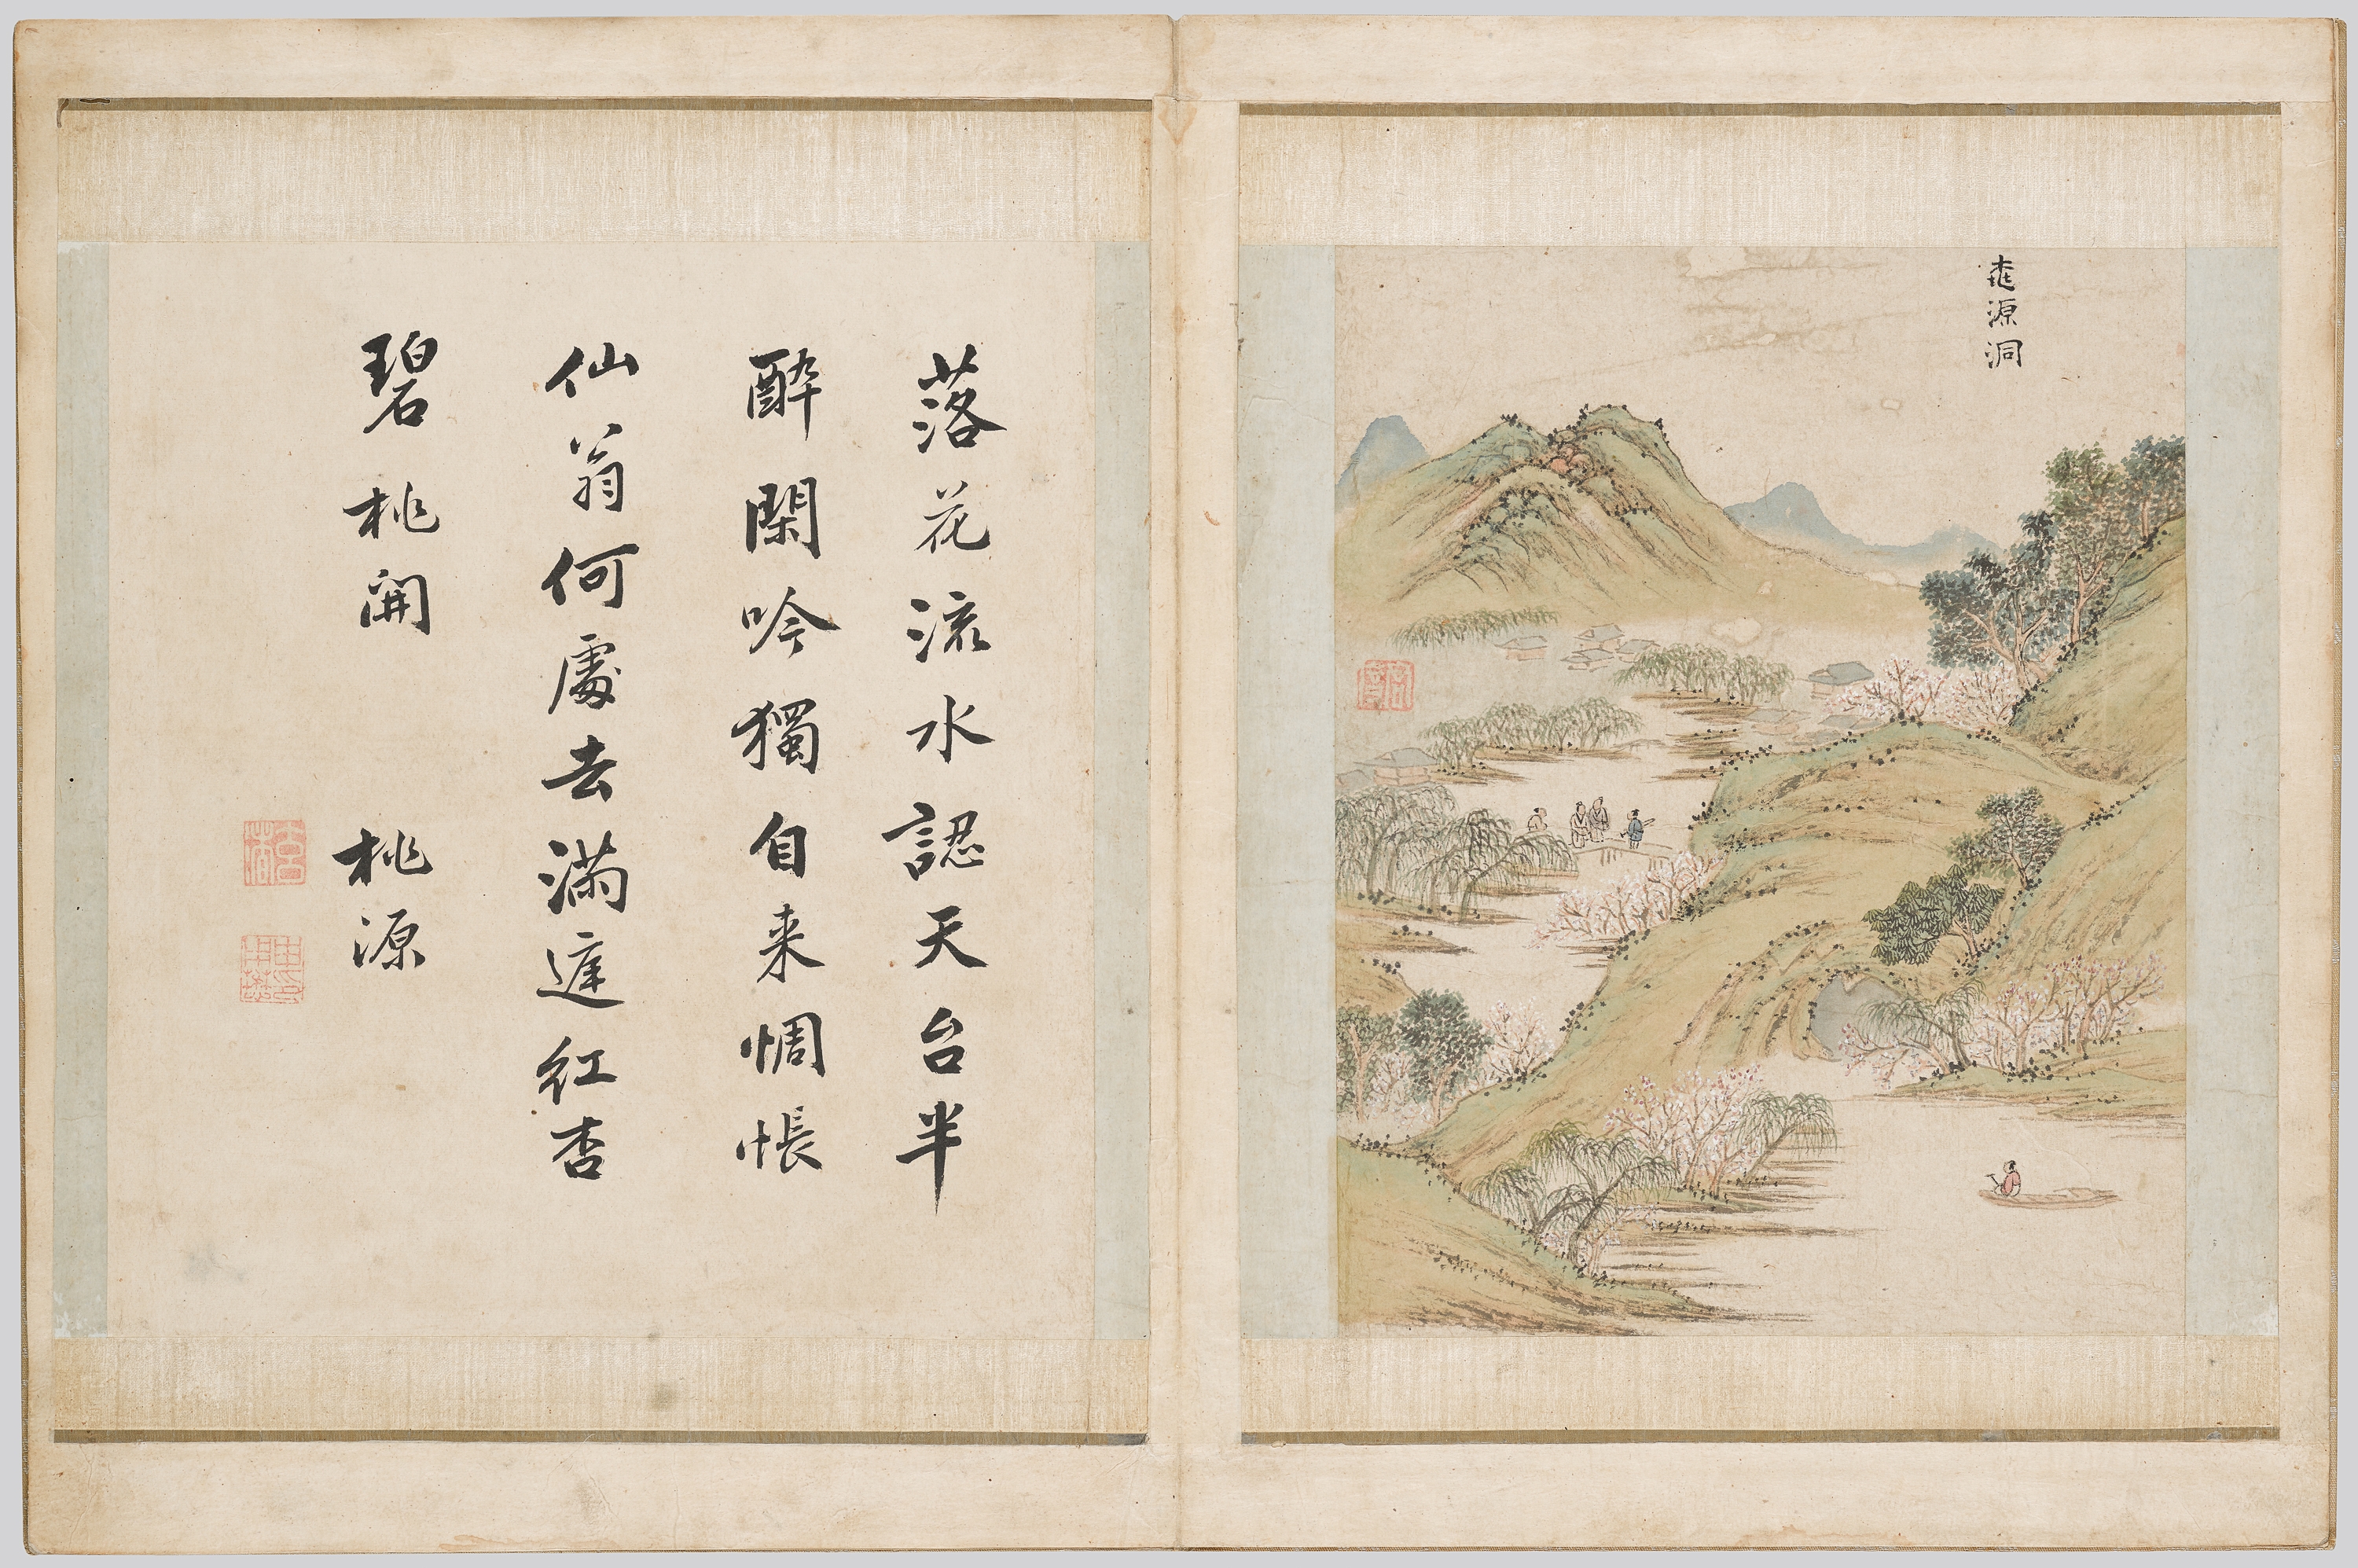 桃源洞
落花流水認天台半
醉閑吟獨自来惆悵
仙翁何處去滿庭紅杏
碧桃開 桃源